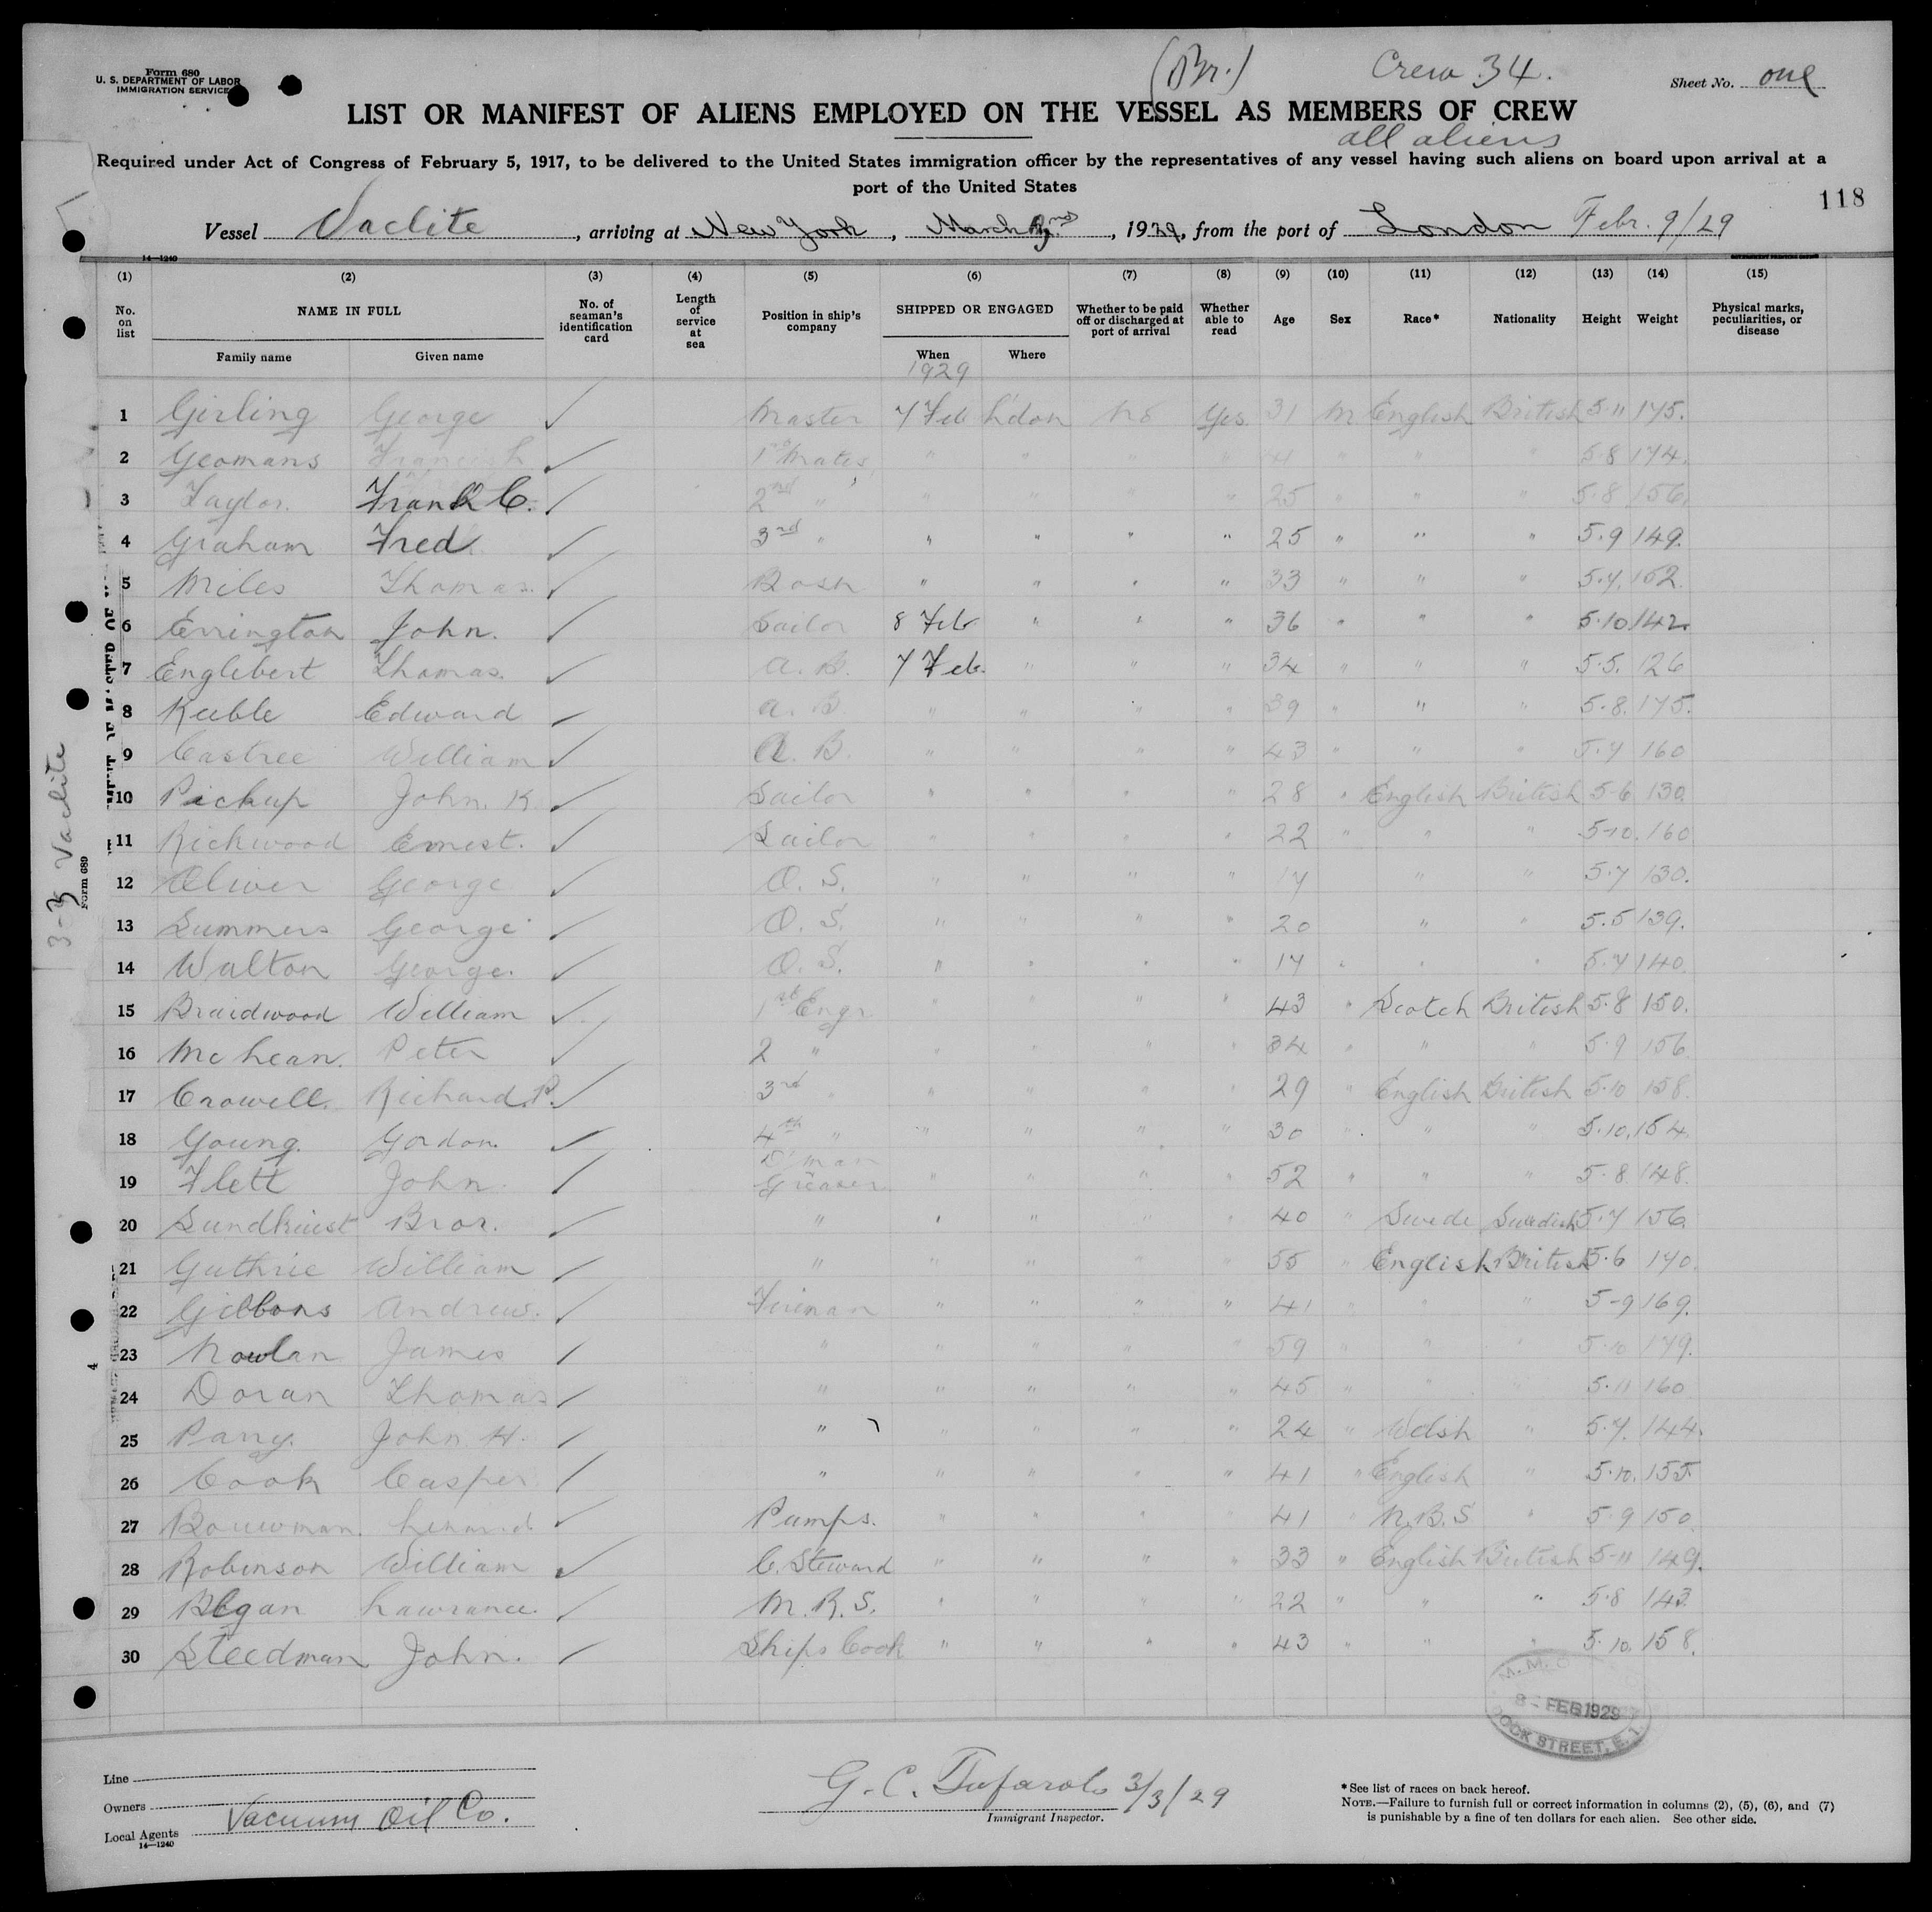 Form 680
U. S. DEPARTMENT OF LABOR
IMMIGRATION SERVICE
(Br.)
Crew 34.
Sheet No. one
LIST OR MANIFEST OF ALIENS EMPLOYED ON THE VESSEL AS MEMBERS OF CREW
all aliens
Required under Act of Congress of February 5, 1917, to be delivered to the United States immigration officer by the representatives of any vessel having such aliens on board upon arrival at a
port of the United States
118
Vessel Vaclite, arriving at New York, March, 1929, from the port of London Febr. 9/29
14—1240
(1) (2) (3) (4) (5) (6) (7) (8) (9) (10) (11) (12) (13) (14) (15)
No. on list NAME IN FULL No. of seaman's identification card Length of service at sea Position in ship's company SHIPPED OR ENGAGED Whether to be paid off or discharged at port of arrival Whether able to read Age Sex Race* Nationality Height Weight Physical marks, peculiarities, or disease
Family name Given name When Where
1929
1 Girling George ✓ Master 7 Feb L'don No Yes 31 M English British 5·11 175.
2 Yeomans ✓ 1st Mate " " " " " " " 5·8 174.
3 Taylor. Frank C. ✓ 2nd " " " " " 25 " " " 5·8 156.
4 Graham Fred ✓ 3rd " " " " " 25 " " " 5·9 149.
5 Miles Thomas. ✓ Bosn " " " " 33 " " " 5·7. 152.
6 Errington John. ✓ Sailor 8 Feb " " " 36 " " " 5·10 142.
7 Englebert Thomas. ✓ A. B. 7 Feb. " " " 34 " " " 5·5. 126
8 Keeble Edward ✓ A. B. " " " " 39 " " " 5·8. 175.
9 Castree William ✓ A. B. " " " " 43 " " " 5·7 160
10 Pickup John. K. ✓ Sailor " " " " 28 " English British 5·6 130.
11 Richwood Ernest. ✓ Sailor " " " " 22 " " " 5-10. 160
12 Oliver George ✓ O. S. " " " " 17 " " 5·7 130.
13 Summers George ✓ O. S. " " " " 20 " " 5·5 139.
14 Walton George. ✓ O. S. " " " " 17 " " " 5·7 140.
15 Braidwood William ✓ 1st Engr " " " " 43 " Scotch British 5·8 150.
16 McLean. Peter ✓ 2 " " " " " 34 " " " 5·9 156
17 Crowell. Richard. P. ✓ 3rd " " " " " 29 " English British 5·10 158.
18 Young. Gordon. ✓ 4th " " " " " 30 " " " 5·10. 154.
19 Flett John. ✓ D'man Greaser " " " " 52 " " " 5·8. 148.
20 Sundkuist Bror. ✓ " " " " " 40 " Swede Swedish 5·7 156.
21 Guthrie William ✓ " " " " " 55 " English British 5·6 170.
22 Gibbons Andrew. ✓ Fireman " " " " 41 " " " 5-9 169.
23 Nowlan James ✓ " " " " " 59 " " " 5·10 179.
24 Doran Thomas ✓ " " " " " 45 " " " 5·11 160
25 Parry. John. H. ✓ " " " " " 24 " Welsh " 5·7. 144.
26 Cook Casper ✓ " " " " " 41 " English " 5·10. 155
27 Bouwman. ✓ Pumps. " " " " 41 " N.B.S " 5·9 150.
28 Robinson William ✓ C. Steward " " " " 33 " English British 5-11 149.
29 Lawrance. ✓ M. R. S. " " " " 22 " " " 5·8 143.
30 Steedman John. ✓ Ships Cook " " " " 43 " " " 5·10. 158.
3-3 Vaclite
Form 689
4
M. M. O
8 - FEB 1929
DOCK STREET, E. 1.
Line
Owners
Local Agents Vacuum Oil Co.
14—1240
G. C. 3/3/29
Immigrant Inspector.
* See list of races on back hereof.
NOTE.—Failure to furnish full or correct information in columns (2), (5), (6), and (7)
is punishable by a fine of ten dollars for each alien. See other side.